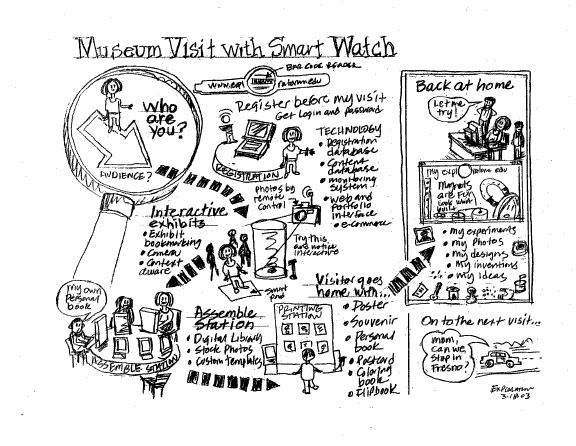 Museum Visit with Smart Watch
BAR CODE READER
Who are you?
AUDIENCE?
Register before my visit
Get Login and password
REGISTRATION
TECHNOLOGY
• Registration
database
• Content
database
• monitoring
system
• web and
portfolio
interface
• e-commerce
Photos by
remote
control
Interactive
exhibits
• Exhibit
bookmarking
• Camera
• Context
aware
Try this
interactive
smart
pad
My own
Personal
book
ASSEMBLE STATION
Assemble
Station
• Digital Library
• Stock Photos
• Custom Templates
PRINTING
STATION
Visitor goes
home with...
• Poster
• Souvenir
• Personal
book
• Postcard
• Coloring
book
• Flipbook
Back at home
Let me
try!
Magnets
are Fun
• my experiments
• my Photos
• my designs
• My inventions
• My Ideas
On to the next visit...
mom,
can we
stop in
Fresno?
3-18-03